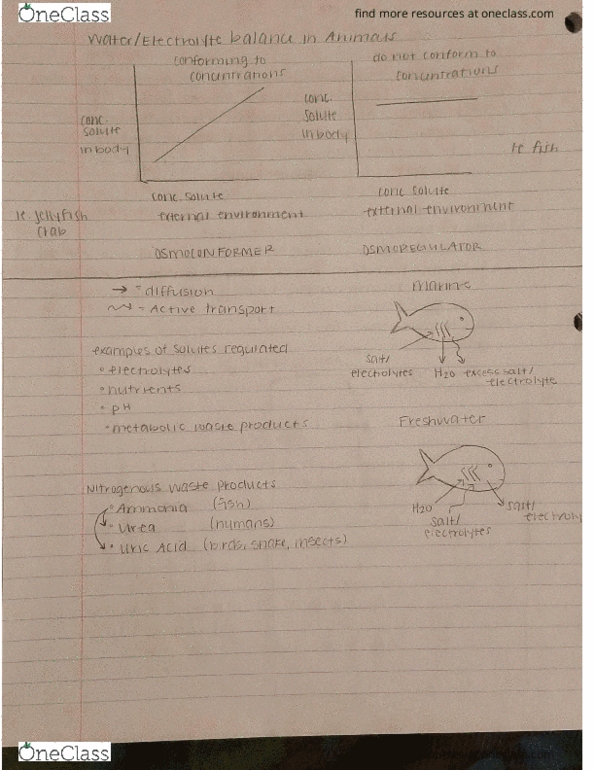 OneClass
find more resources at oneclass.com
Water/Electrolyte balance in Animals
conforming to concentrations
do not conform to concentrations
conc. solute in body
conc. solute in body
ie fish
conc solute external environment
conc solute external environment
ie jellyfish crab
OSMOCONFORMER
OSMOREGULATOR
→ = diffusion
= Active transport
marine
examples of solutes regulated
salt/ electrolytes
H2O excess salt/ electrolyte
• electrolytes
• nutrients
• pH
• metabolic waste products
Freshwater
Nitrogenous waste products
• Ammonia (fish)
• Urea (humans)
• Uric Acid (birds, snake, insects)
H2O
salt/ electrolytes
salt/ electroly
OneClass